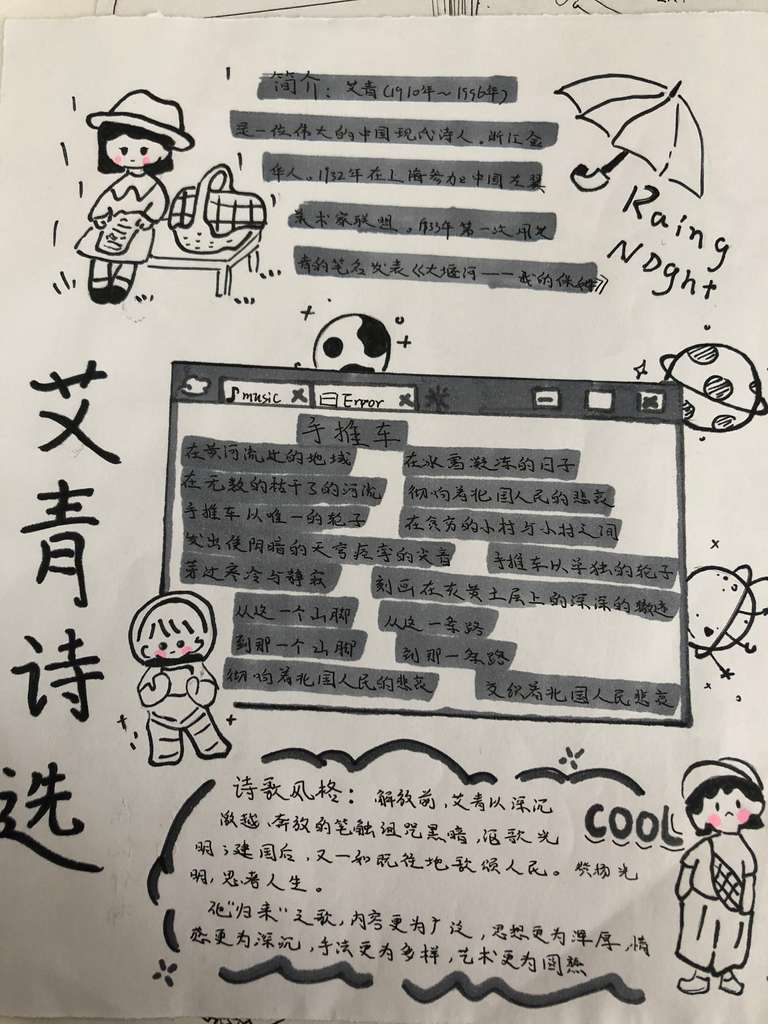 简介：艾青(1910年～1996年)
是一位伟大的中国现代诗人。浙江金
华人。1932年在上海参加中国左翼
美术家联盟。1933年第一次用艾
青的笔名发表《大堰河——我的保姆》
Raing
NDght
艾青诗选
music
Error
手推车
在黄河流过的地域
在冰雪凝冻的日子
在无数的枯干了的河流
彻响着北国人民的悲哀
手推车以唯一的轮子
在贫穷的小村与小村之间
发出使阴暗的天穹痉挛的尖音
手推车以单独的轮子
穿过寒冷与静寂
刻画在灰黄土层上的深深的辙迹
从这一个山脚
从这一条路
到那一个山脚
到那一条路
彻响着北国人民的悲哀
交织着北国人民悲哀
诗歌风格：解放前，艾青以深沉
激越、奔放的笔触诅咒黑暗，讴歌光
明；建国后，又一如既往地歌颂人民。赞扬光
明，思考人生。
他"归来"之歌，内容更为广泛，思想更为浑厚，情
感更为深沉，手法更为多样，艺术更为圆熟
COOL